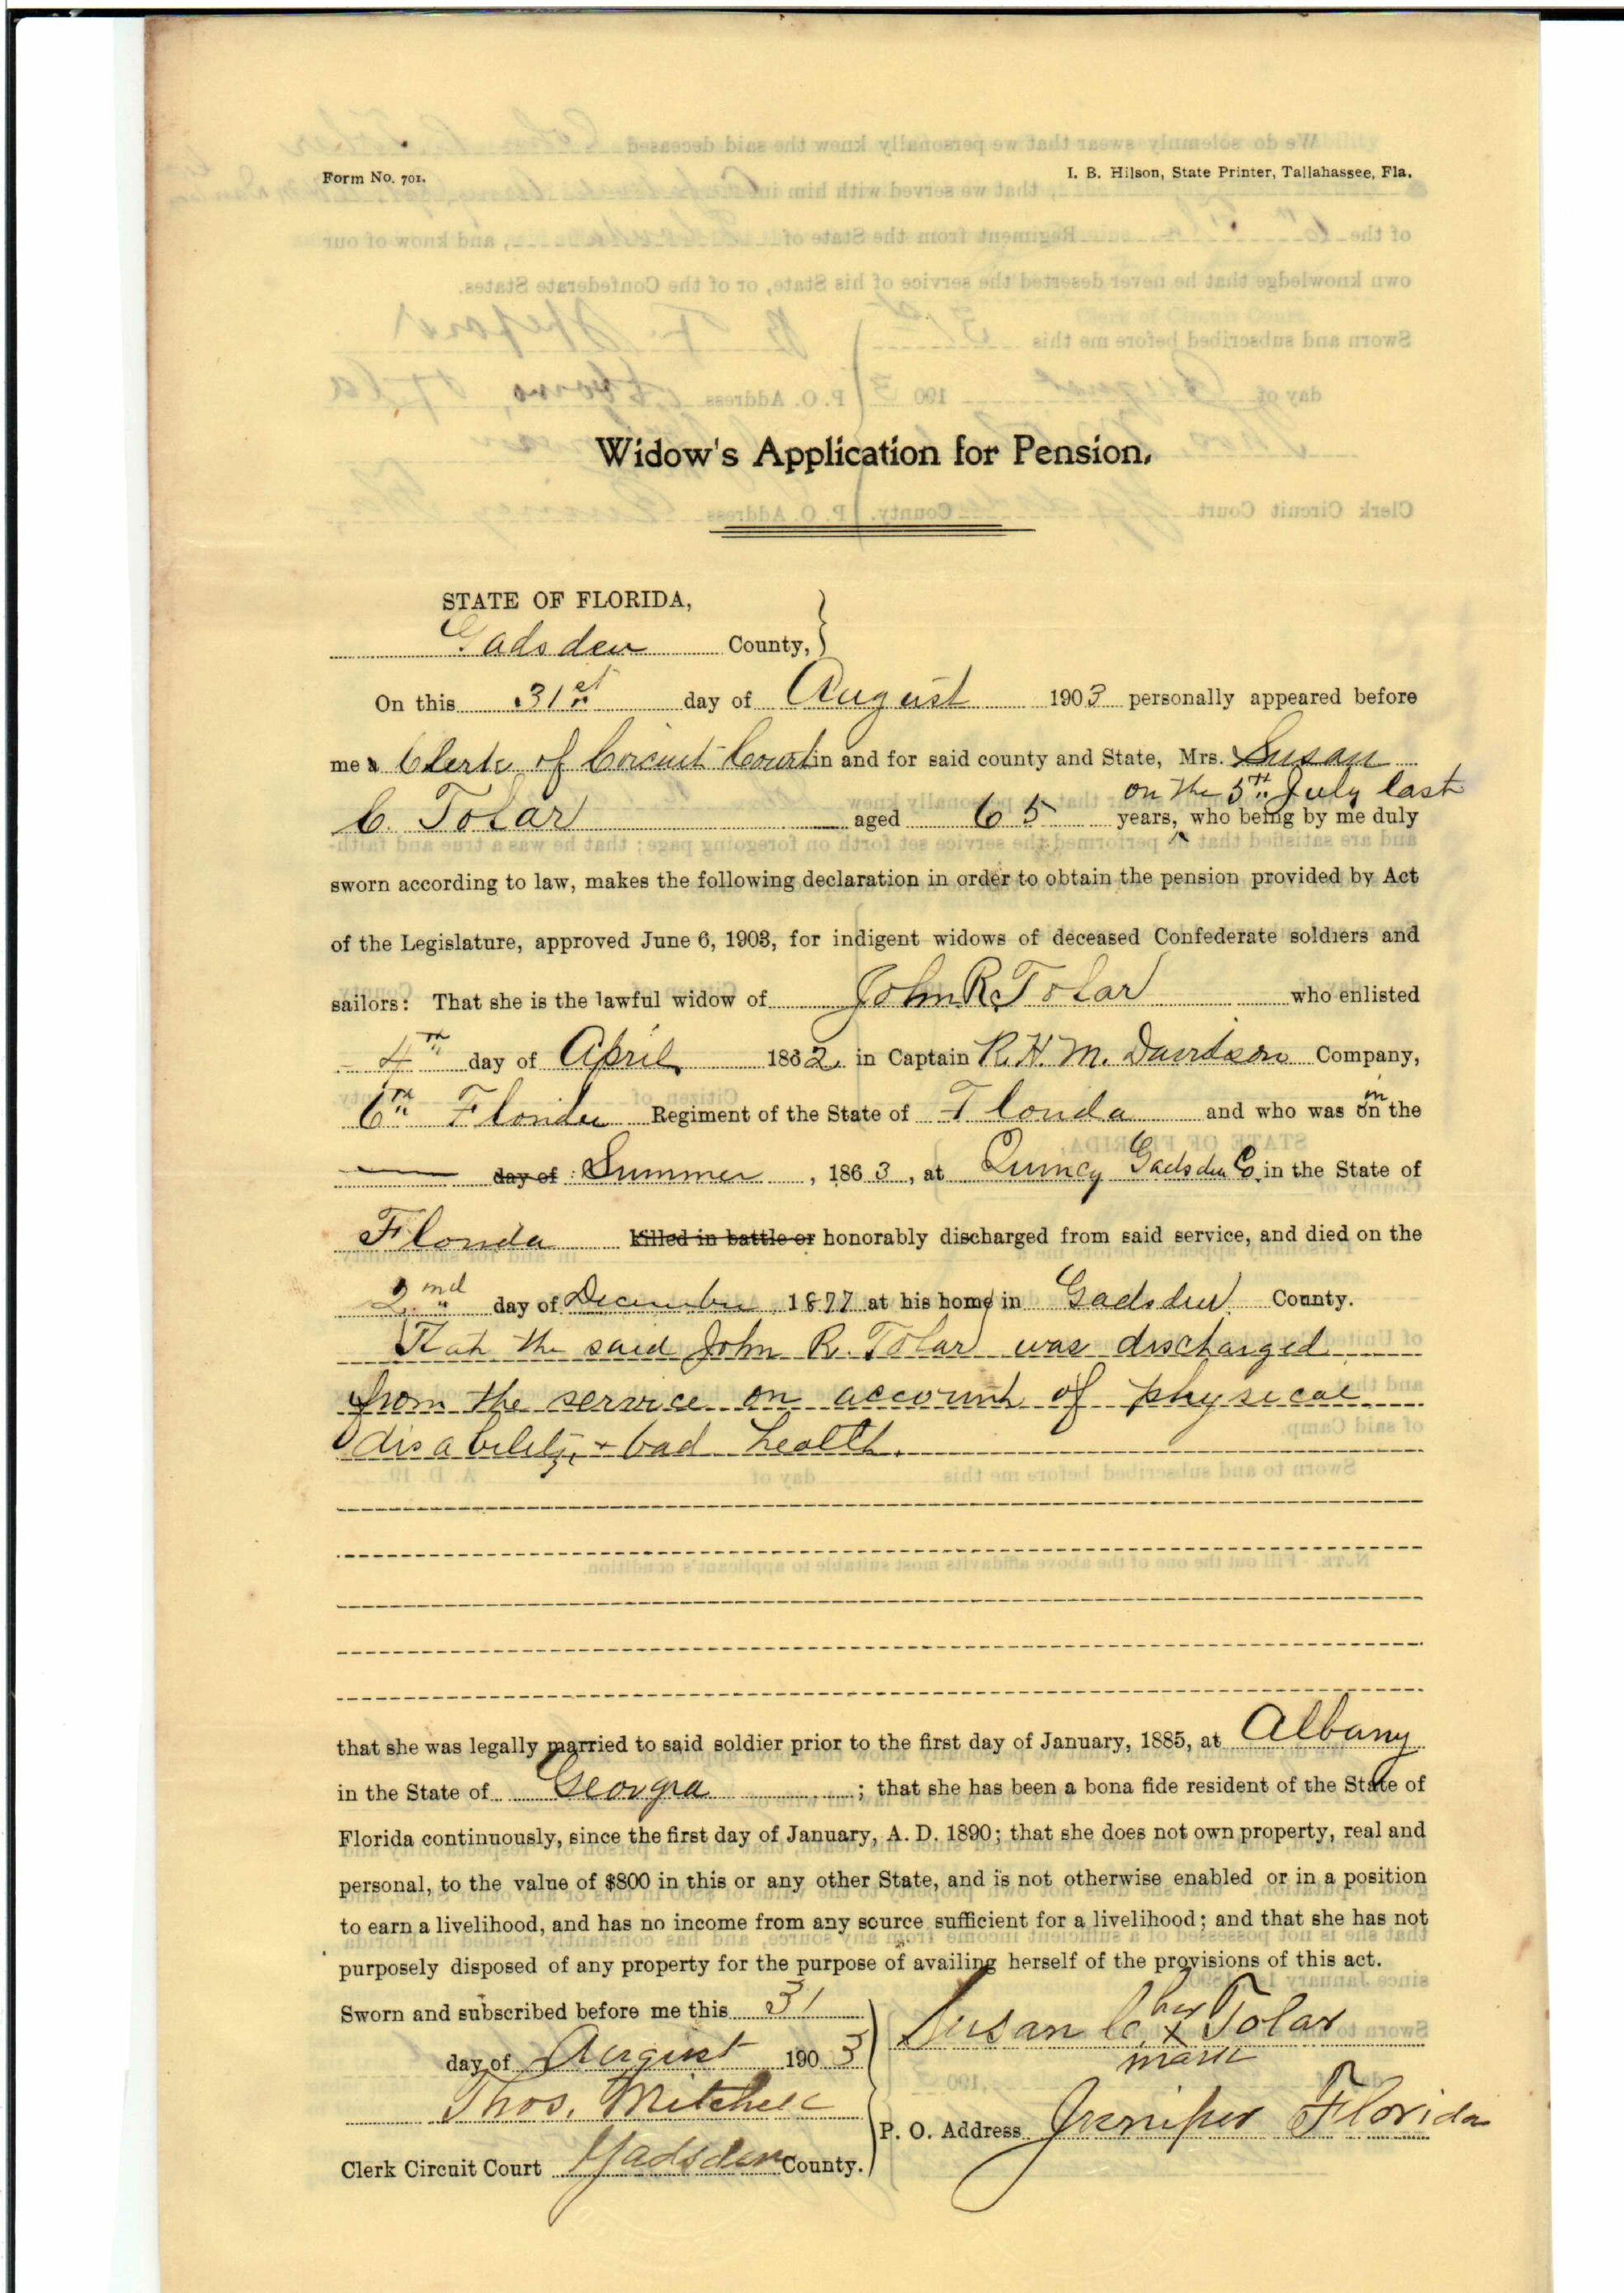 Form No. 701.
I. B. Hilson, State Printer, Tallahassee, Fla.
Widow's Application for Pension.
STATE OF FLORIDA,
Gadsden County,
On this 31st day of August 1903 personally appeared before
me a Clerk of Circuit Court in and for said county and State, Mrs. Susan
on the 5th July last
C. Tolar aged 65 years, who being by me duly
sworn according to law, makes the following declaration in order to obtain the pension provided by Act
of the Legislature, approved June 6, 1903, for indigent widows of deceased Confederate soldiers and
sailors: That she is the lawful widow of John R. Tolar who enlisted
4th day of April 1862 in Captain R. H. M. Davidson Company,
6th Florida Regiment of the State of Florida and who was in the
day of Summer, 1863, at Quincy Gadsden Co. in the State of
Florida killed in battle or honorably discharged from said service, and died on the
2nd day of December 1877 at his home in Gadsden County.
That the said John R. Tolar was discharged
from the service on account of physical
disability, + bad health.
that she was legally married to said soldier prior to the first day of January, 1885, at Albany
in the State of Georgia; that she has been a bona fide resident of the State of
Florida continuously, since the first day of January, A. D. 1890; that she does not own property, real and
personal, to the value of $800 in this or any other State, and is not otherwise enabled or in a position
to earn a livelihood, and has no income from any source sufficient for a livelihood; and that she has not
purposely disposed of any property for the purpose of availing herself of the provisions of this act.
Sworn and subscribed before me this 31
day of August 1903
Thos. Mitchell
Clerk Circuit Court Gadsden County.
Susan C. her x mark Tolar
P. O. Address Juniper Florida